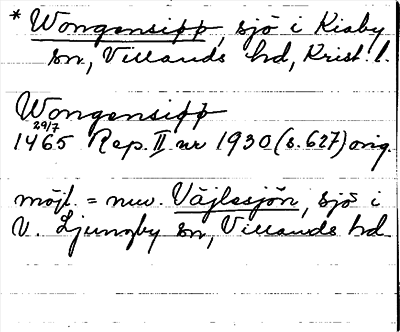 * Wongensiøø, sjö i Kiaby
sn, Villands hd, Krist. l.
Wongensiøø
29/7
1465 Rep. II nr 1930 (s. 627) orig.
möjl. = nuv. Väjlesjön, sjö i
V. Ljungby sn, Villands hd.